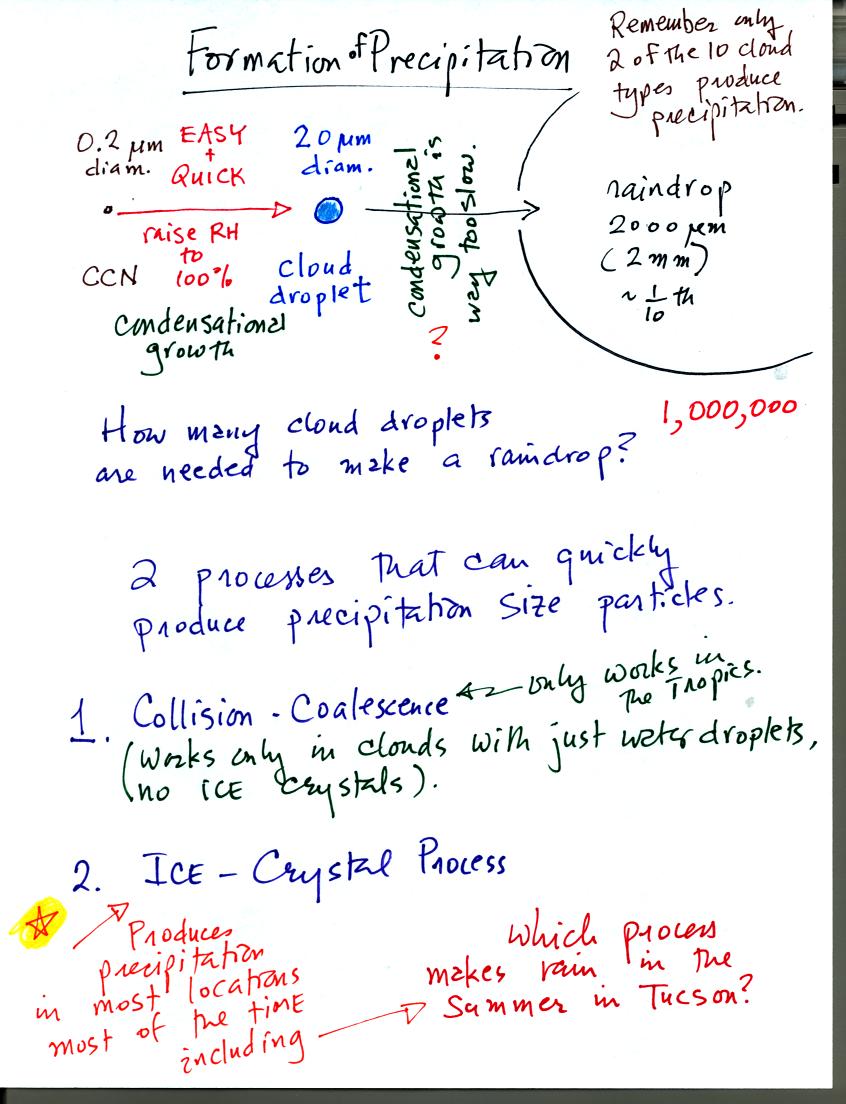 Formation of Precipitation
Remember only
2 of the 10 cloud
types produce
precipitation.
0.2 µm
diam.
EASY
+
QUICK
raise RH
to
100%
CCN
condensational
growth
20 µm
diam.
cloud
droplet
Condensational
growth is
way too slow.
?
raindrop
2000 µm
(2mm)
~ 1/10 th
How many cloud droplets
are needed to make a raindrop?
1,000,000
2 processes that can quickly
produce precipitation size particles.
1. Collision - Coalescence
only works in
the Tropics.
(works only in clouds with just water droplets,
no ICE crystals).
2. ICE - Crystal Process
Produces
precipitation
in most locations
most of the time
including
which process
makes rain in the
Summer in Tucson?